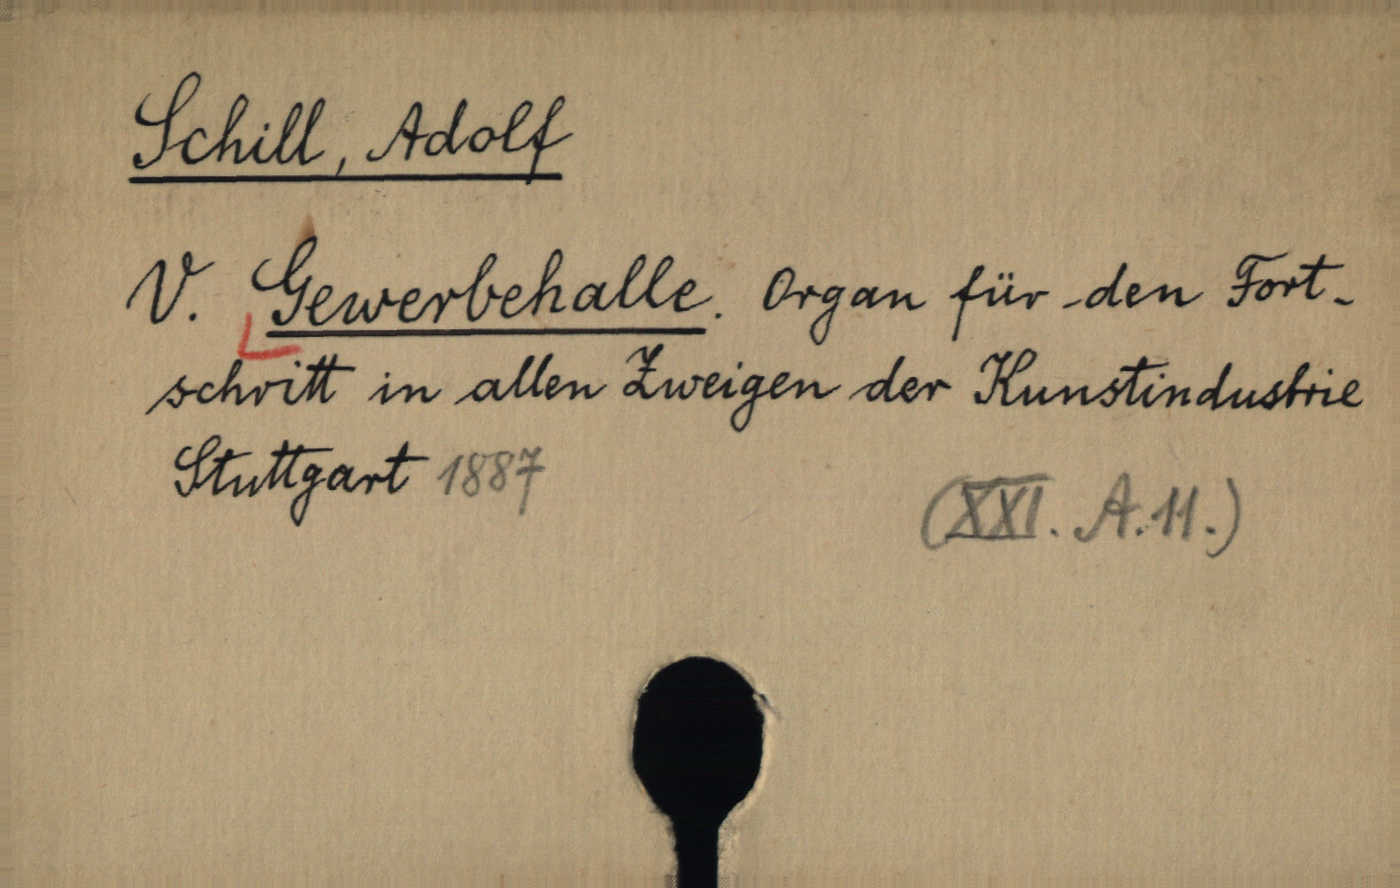 Schill, Adolf
V. Gewerbehalle. Organ für den Fort-
schritt in allen Zweigen der Kunstindustrie
Stuttgart 1887
(XXI. A. 11.)